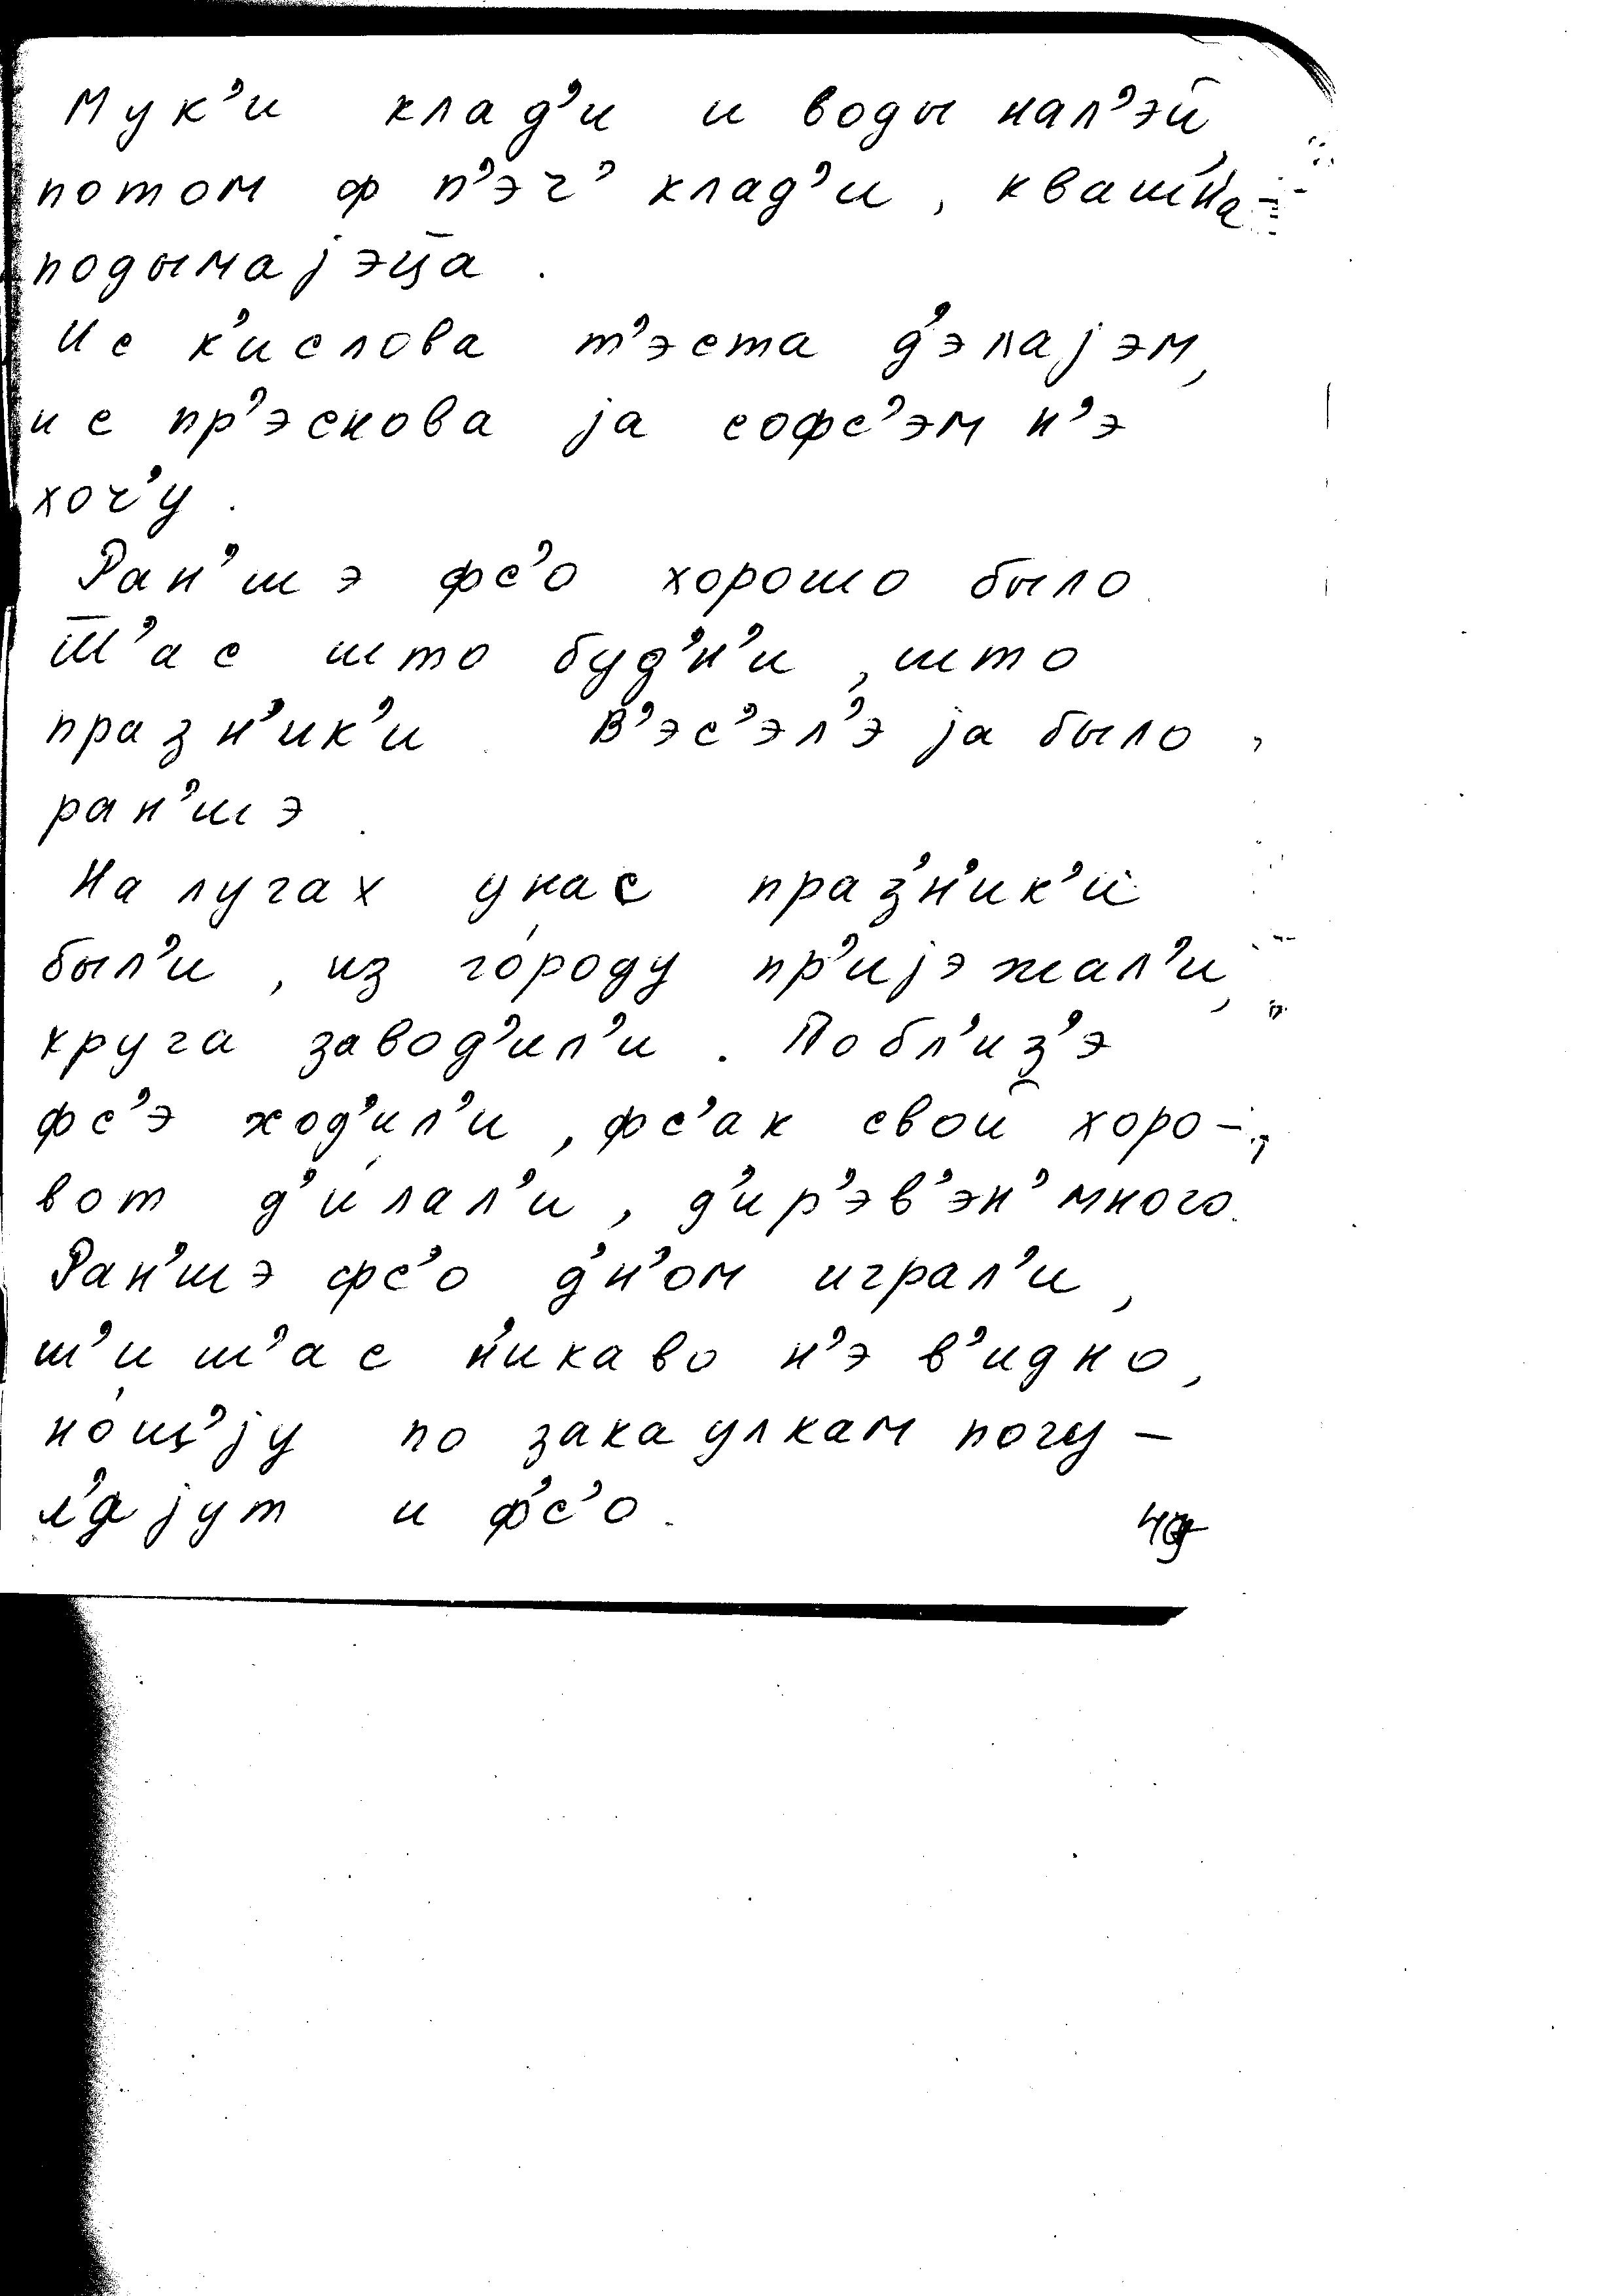 Мук’и клад’и и воды нал’эй,
потом ф п’эч’ клад’и, квашн’а
подымаjэц̄а.
Ис к’ислова т’эста д’элаjэм,
ис пр’эснова jа софс’эм н’э
хоч’у.
Ран’шэ фс’о хорошо было.
Ш̄’ас што буд’н’и, што
празн’ик’и. В’эс’эл’э jа было
ран’шэ.
На лугах у нас праз’н’ик’и
был’и, из го́роду пр’иjэжал’и,
круга завод’ил’и. Побл’из’э
фс’э ход’ил’и, фс’ак свой хоро-
вот д’и́лал’и, д’ир’эв’эн’ много.
Ран’шэ фс’о д’н’ом играл’и,
ш’иш’ас н’икаво н’э в’идно,
но́ш’jу по закаулкам погу-
л’аjут и ф’с’о.